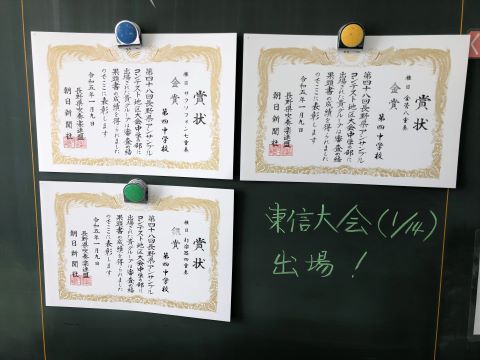 賞状
種目 サクソフォン七重奏
金賞
第四中学校
第四十八回長野県アンサンブル
コンテスト地区大会中学の部に
出場された貴グループは審査の結
果頭書の成績を得られました
のでここに表彰します
令和五年一月九日
長野県吹奏楽連盟
朝日新聞社
賞状
種目 金管八重奏
金賞
第四中学校
第四十八回長野県アンサンブル
コンテスト地区大会中学の部に
出場された貴グループは審査の結
果頭書の成績を得られました
のでここに表彰します
令和五年一月九日
長野県吹奏楽連盟
朝日新聞社
賞状
種目 打楽器四重奏
銀賞
第四中学校
第四十八回長野県アンサンブル
コンテスト地区大会中学の部に
出場された貴グループは審査の結
果頭書の成績を得られました
のでここに表彰します
令和五年一月九日
長野県吹奏楽連盟
朝日新聞社
東信大会(1/14)
出場!